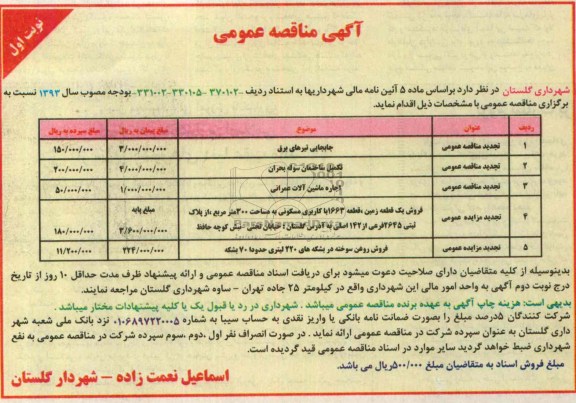 نوبت اول
آگهی مناقصه عمومی
شهرداری گلستان در نظر دارد براساس ماده ۵ آئین نامه مالی شهرداریها به استناد ردیف ۳۷۰۱۰۲-۳۳۰۱۰۵-۳۳۱۰۰۲-بودجه مصوب سال ۱۳۹۳ نسبت به
برگزاری مناقصه عمومی با مشخصات ذیل اقدام نماید.
ردیف عنوان موضوع مبلغ پیمان به ریال مبلغ سپرده به ریال
۱ تجدید مناقصه عمومی جابجایی تیرهای برق ۳/۰۰۰/۰۰۰/۰۰۰ ۱۵۰/۰۰۰/۰۰۰
۲ تجدید مناقصه عمومی تکمیل ساختمان سوله بحران ۴/۰۰۰/۰۰۰/۰۰۰ ۲۰۰/۰۰۰/۰۰۰
۳ تجدید مناقصه عمومی اجاره ماشین آلات عمرانی ۱/۰۰۰/۰۰۰/۰۰۰ ۵۰/۰۰۰/۰۰۰
۴ تجدید مزایده عمومی فروش یک قطعه زمین ،قطعه ۱۶۶۳با کاربری مسکونی به مساحت ۳۰۰متر مربع ،از پلاک
ثبتی ۲۶۴۵فرعی از۱۴۲ اصلی به آدرس گلستان : خیابان نبش کوچه حافظ
مبلغ پایه
۳/۶۰۰/۰۰۰/۰۰۰ ۱۸۰/۰۰۰/۰۰۰
۵ تجدید مزایده عمومی فروش روغن سوخته در بشکه های ۲۲۰ لیتری حدودا ۷۰ بشکه ۲۲۴/۰۰۰/۰۰۰ ۱۱/۲۰۰/۰۰۰
بدینوسیله از کلیه متقاضیان دارای صلاحیت دعوت میشود برای دریافت اسناد مناقصه عمومی و ارائه پیشنهاد ظرف مدت حداقل ۱۰ روز از تاریخ
درج نوبت دوم آگهی به واحد امور مالی این شهرداری واقع در کیلومتر ۲۵ جاده تهران - ساوه شهرداری گلستان مراجعه نمایند.
بدیهی است: هزینه چاپ آگهی به عهده برنده مناقصه عمومی میباشد . شهرداری در رد یا قبول یک یا کلیه پیشنهادات مختار میباشد .
شرکت کنندگان ۵درصد مبلغ را بصورت ضمانت نامه بانکی یا واریز نقدی به حساب سیبا به شماره ۰۱۰۶۸۹۷۲۲۰۰۰۵ نزد بانک ملی شعبه شهر
داری گلستان به عنوان سپرده شرکت در مناقصه عمومی ارائه نماید . در صورت انصراف نفر اول ،دوم ،سوم سپرده شرکت در مناقصه عمومی به نفع
شهرداری ضبط خواهد گردید سایر موارد در اسناد مناقصه عمومی قید گردیده است.
مبلغ فروش اسناد به متقاضیان مبلغ ۵۰۰/۰۰۰ریال می باشد.
اسماعیل نعمت زاده - شهردار گلستان